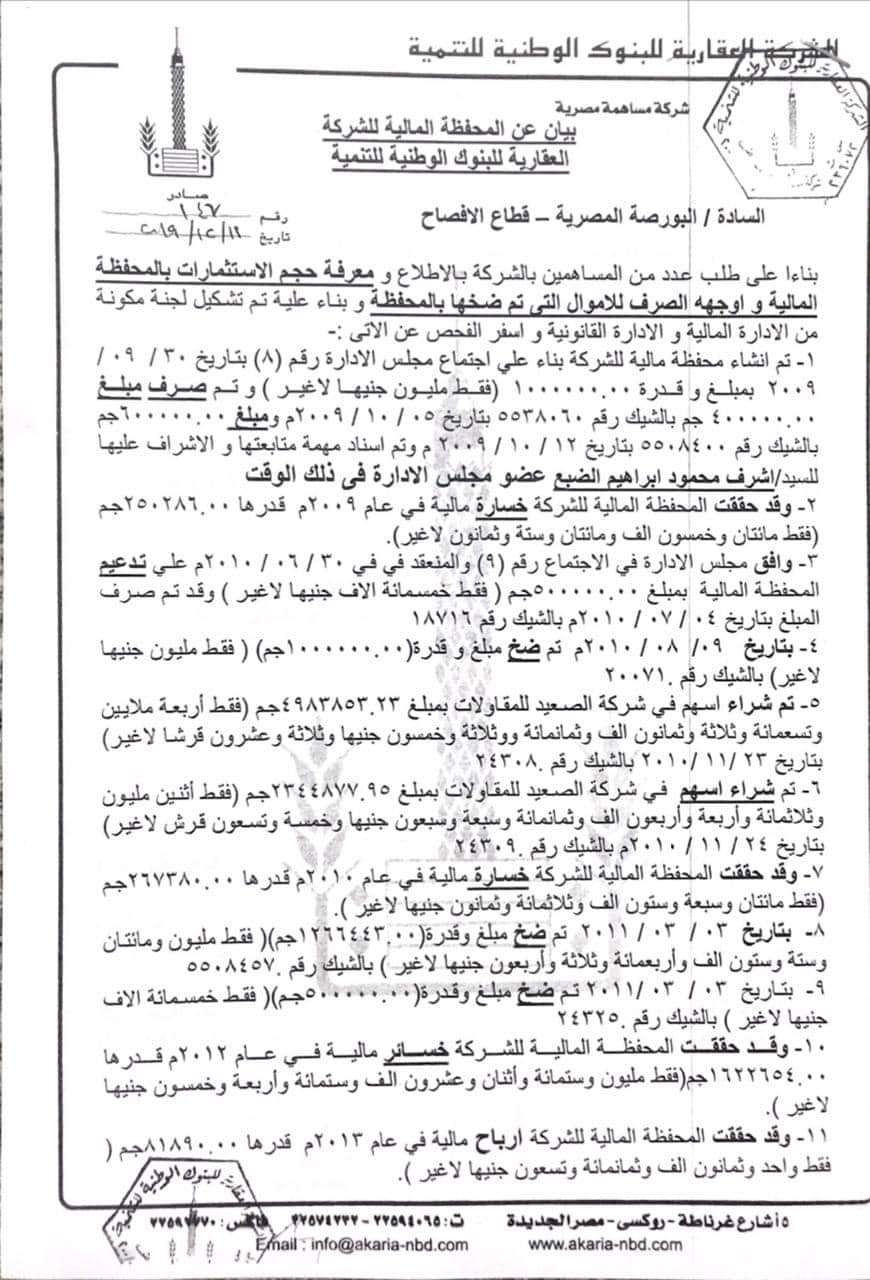 الشركة العقارية للبنوك الوطنية للتنمية
شركة مساهمة مصرية
بيان عن المحفظة المالية للشركة
العقارية للبنوك الوطنية للتنمية
صادر
رقم ١٤٧
تاريخ ٢٠١٩/١٢/١١
السادة / البورصة المصرية – قطاع الافصاح
بناءا على طلب عدد من المساهمين بالشركة بالاطلاع و معرفة حجم الاستثمارات بالمحفظة
المالية و اوجهه الصرف للاموال التى تم ضخها بالمحفظة و بناء علية تم تشكيل لجنة مكونة
من الادارة المالية و الادارة القانونية و اسفر الفحص عن الاتى :-
١- تم انشاء محفظة مالية للشركة بناء علي اجتماع مجلس الادارة رقم (٨) بتاريخ ٣٠ / ٠٩ /
٢٠٠٩ بمبلغ و قدرة ١٠٠٠٠٠٠.٠٠ (فقط مليون جنيها لاغير ) و تم صرف مبلغ
٤٠٠٠٠٠.٠٠ جم بالشيك رقم ٥٥٣٨٠٦٠ بتاريخ ٠٥ / ١٠ / ٢٠٠٩م ومبلغ ٦٠٠٠٠٠.٠٠جم
بالشيك رقم ٥٥٠٨٤٠٠ بتاريخ ١٢ / ١٠ / ٢٠٠٩ م وتم اسناد مهمة متابعتها و الاشراف عليها
للسيد/اشرف محمود ابراهيم الضبع عضو مجلس الادارة فى ذلك الوقت
٢- وقد حققت المحفظة المالية للشركة خسارة مالية في عام ٢٠٠٩م قدرها ٢٥٠٢٨٦.٠٠جم
(فقط مائتان وخمسون الف ومائتان وستة وثمانون لاغير).
٣- وافق مجلس الادارة في الاجتماع رقم (٩) والمنعقد في في ٣٠ / ٠٦ / ٢٠١٠م علي تدعيم
المحفظة المالية بمبلغ ٥٠٠٠٠٠.٠٠جم ( فقط خمسمائة الاف جنيها لاغير ) وقد تم صرف
المبلغ بتاريخ ٠٤ / ٠٧ / ٢٠١٠م بالشيك رقم ١٨٧١٦
٤- بتاريخ ٠٩ / ٠٨ / ٢٠١٠م تم ضخ مبلغ و قدرة(١٠٠٠٠٠٠.٠٠جم) ( فقط مليون جنيها
لاغير) بالشيك رقم .٢٠٠٧١
٥- تم شراء اسهم في شركة الصعيد للمقاولات بمبلغ ٤٩٨٣٨٥٣.٢٣جم (فقط أربعة ملايين
وتسعمائة وثلاثة وثمانون الف وثمانمائة ووثلاثة وخمسون جنيها وثلاثة وعشرون قرشا لاغير)
بتاريخ ٢٣ / ١١ / ٢٠١٠ بالشيك رقم .٢٤٣٠٨
٦- تم شراء اسهم في شركة الصعيد للمقاولات بمبلغ ٢٣٤٤٨٧٧.٩٥جم (فقط أثنين مليون
وثلاثمائة وأربعة وأربعون الف وثمانمائة وسبعة وسبعون جنيها وخمسة وتسعون قرش لاغير)
بتاريخ ٢٤ / ١١ / ٢٠١٠م بالشيك رقم .٢٤٣٠٩
٧- وقد حققت المحفظة المالية للشركة خسارة مالية في عام ٢٠١٠م قدرها ٢٦٧٣٨٠.٠٠جم
(فقط مائتان وسبعة وستون الف وثلاثمائة وثمانون جنيها لاغير ).
٨- بتاريخ ٠٣ / ٠٣ / ٢٠١١ تم ضخ مبلغ وقدرة(١٢٦٦٤٤٣.٠٠جم)( فقط مليون ومائتان
وستة وستون الف وأربعمائة وثلاثة وأربعون جنيها لاغير ) بالشيك رقم .٥٥٠٨٤٥٧
٩- بتاريخ ٠٣ / ٠٣ /٢٠١١ تم ضخ مبلغ وقدرة(٥٠٠٠٠٠.٠٠جم)( فقط خمسمائة الاف
جنيها لاغير ) بالشيك رقم .٢٤٣٢٥
١٠- وقد حققت المحفظة المالية للشركة خسائر مالية في عام ٢٠١٢م قدرها
١٦٢٢٦٥٤.٠٠جم(فقط مليون وستمائة وأثنان وعشرون الف وستمائة وأربعة وخمسون جنيها
لاغير ).
١١- وقد حققت المحفظة المالية للشركة ارباح مالية في عام ٢٠١٣م قدرها ٨١٨٩٠.٠٠جم (
فقط واحد وثمانون الف وثمانمائة وتسعون جنيها لاغير ).
٥ أشارع غرناطة- روكسى- مصر الجديدة ت: ٢٢٥٩٤٠٦٥- ٢٢٥٧٤٢٣٢ فاكس: ٢٢٥٩٢٢٧٠
www.akaria-nbd.com Email : info@akaria-nbd.com